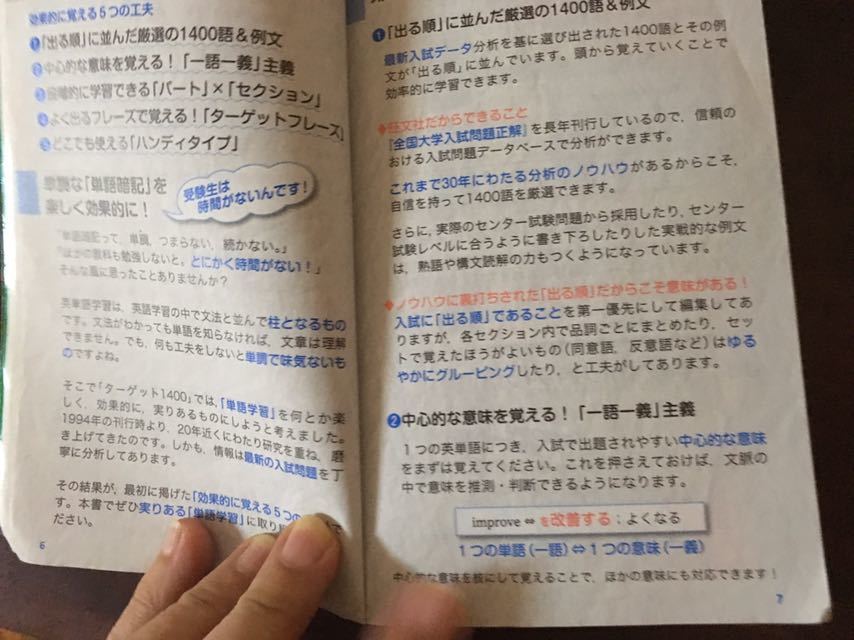 効果的に覚える5つの工夫
❶「出る順」に並んだ厳選の1400語&例文
❷中心的な意味を覚える!「一語一義」主義
❸段階的に学習できる「パート」×「セクション」
❹よく出るフレーズで覚える!「ターゲットフレーズ」
❺どこでも使える「ハンディタイプ」
単調な「単語暗記」を
楽しく効果的に!
受験生は
時間がないんです!
「単語暗記って,単調,つまらない,続かない。」
「ほかの教科も勉強しないと。とにかく時間がない!」
そんな風に思ったことありませんか?
英単語学習は,英語学習の中で文法と並んで柱となるもの
です。文法がわかっても単語を知らなければ,文章は理解
できません。でも,何も工夫をしないと単調で味気ないも
のですよね。
そこで「ターゲット1400」では,「単語学習」を何とか楽
しく,効果的に,実りあるものにしようと考えました。
1994年の刊行時より,20年近くにわたり研究を重ね,磨
き上げてきたのです。しかも,情報は最新の入試問題を丁
寧に分析してあります。
その結果が,最初に掲げた「効果的に覚える5つの
す。本書でぜひ実りある「単語学習」に取り
ださい。
6
❶「出る順」に並んだ厳選の1400語&例文
最新入試データ分析を基に選び出された1400語とその例
文が「出る順」に並んでいます。頭から覚えていくことで
効率的に学習できます。
◆旺文社だからできること
『全国大学入試問題正解』を長年刊行しているので,信頼の
おける入試問題データベースで分析ができます。
これまで30年にわたる分析のノウハウがあるからこそ,
自信を持って1400語を厳選できます。
さらに,実際のセンター試験問題から採用したり,センター
試験レベルに合うように書き下ろしたりした実戦的な例文
は,熟語や構文読解の力もつくようになっています。
◆ノウハウに裏打ちされた「出る順」だからこそ意味がある!
入試に「出る順」であることを第一優先にして編集してあ
りますが,各セクション内で品詞ごとにまとめたり,セッ
トで覚えたほうがよいもの(同意語,反意語など)はゆる
やかにグルーピングしたり,と工夫がしてあります。
❷中心的な意味を覚える!「一語一義」主義
1つの英単語につき,入試で出題されやすい中心的な意味
をまずは覚えてください。これを押さえておけば,文脈の
中で意味を推測・判断できるようになります。
improve ⇔ を改善する;よくなる
1つの単語(一語)⇔1つの意味(一義)
中心的な意味を核にして覚えることで,ほかの意味にも対応できます!
7